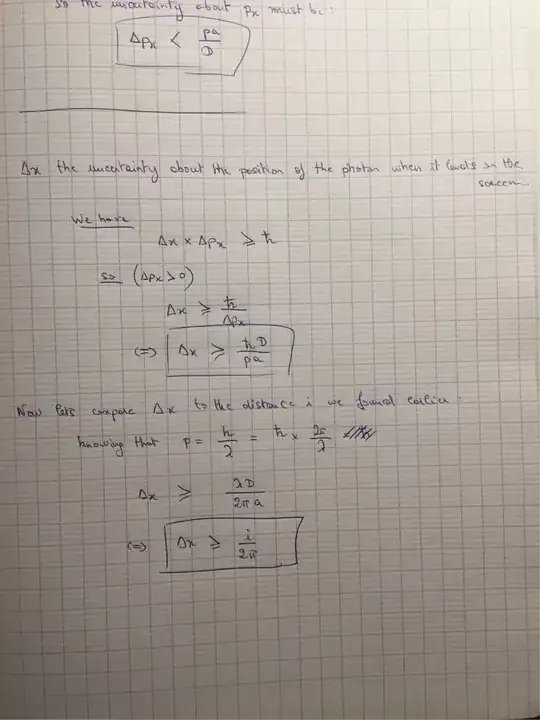 So the uncertainty about px must be:
Δpx < pa/D
Δx the uncertainty about the position of the photon when it lands on the
screen
We have
Δx × Δpx ⩾ ħ
so (Δpx > 0)
Δx ⩾ ħ/Δpx
(=) Δx ⩾ ħD/pa
Now lets compare Δx to the distance i we found earlier:
knowing that p = h/λ = ħ × 2π/λ
Δx ⩾ λD/2πa
(=) Δx ⩾ i/2π